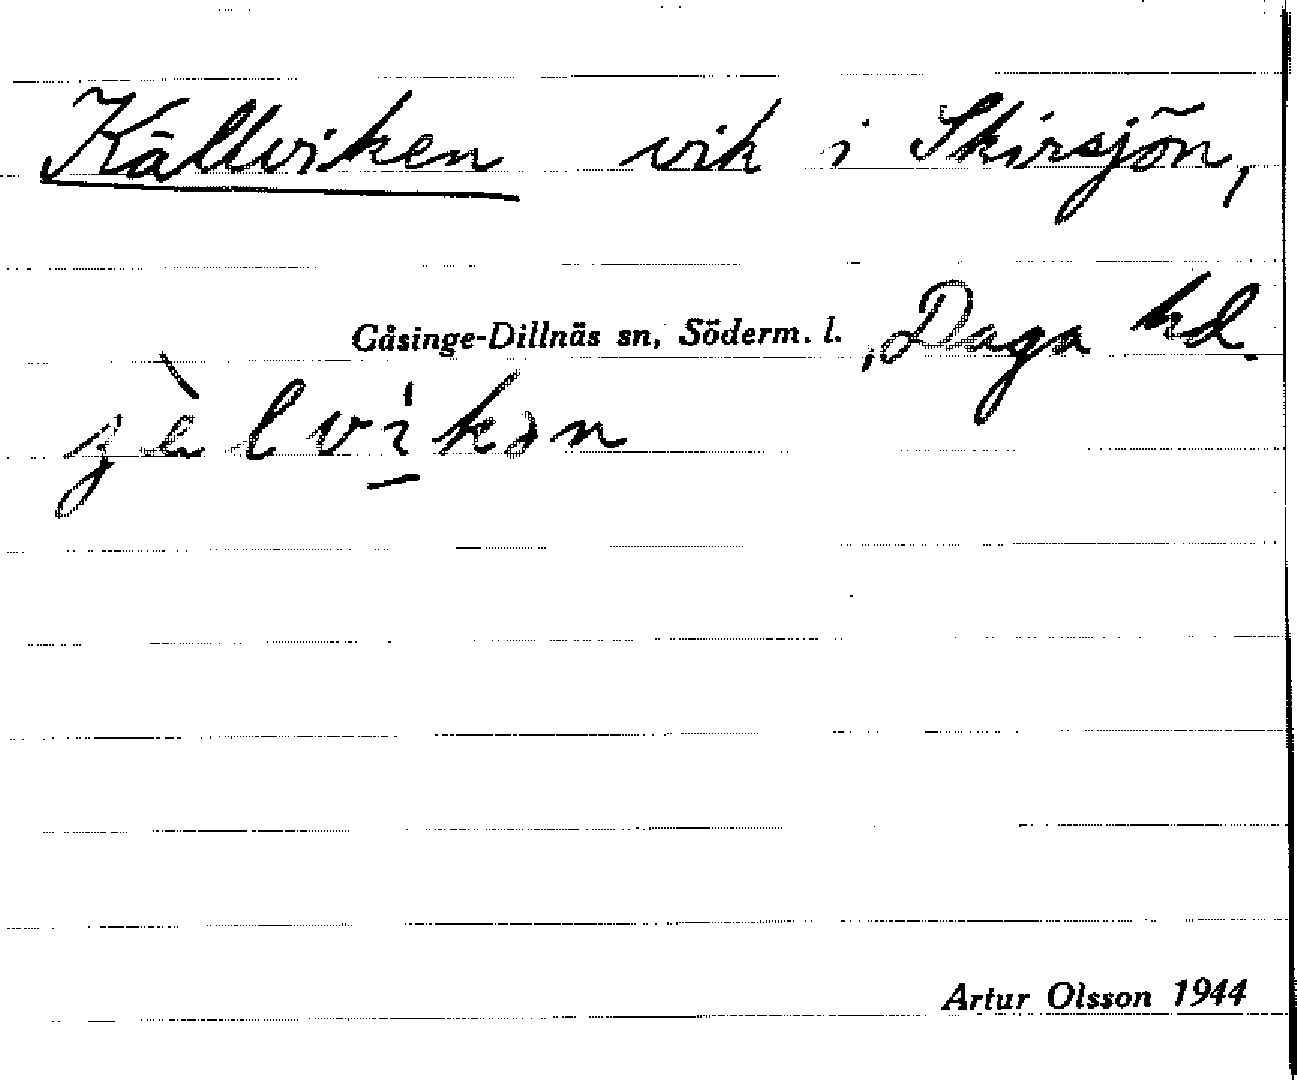 Källviken vik i Skirsjön,
Gåsinge-Dillnäs sn, Söderm. l., Daga hd.
ʒèlvi̲kən
Artur Olsson 1944